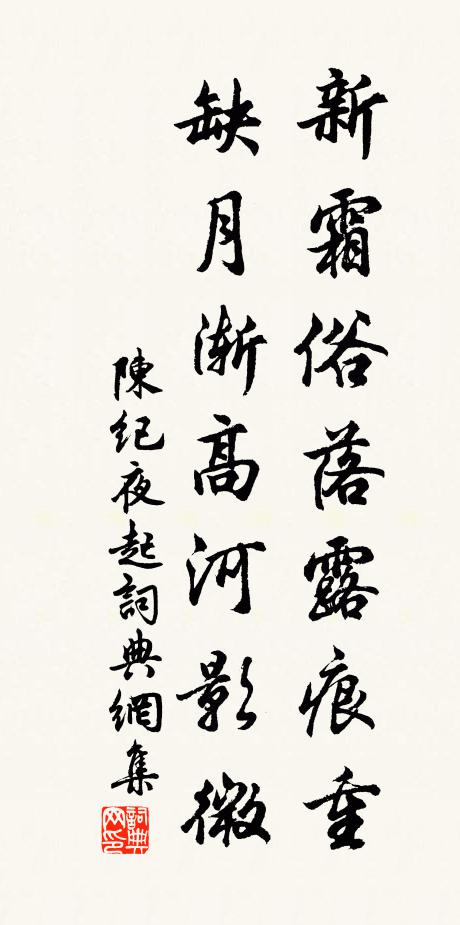 新霜俗落露痕重
缺月渐高河影微
陳纪夜起詞典網集
詞典
网印